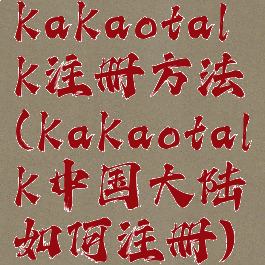 kakaotal
k注册方法
(kakaotal
k中国大陆
如何注册)